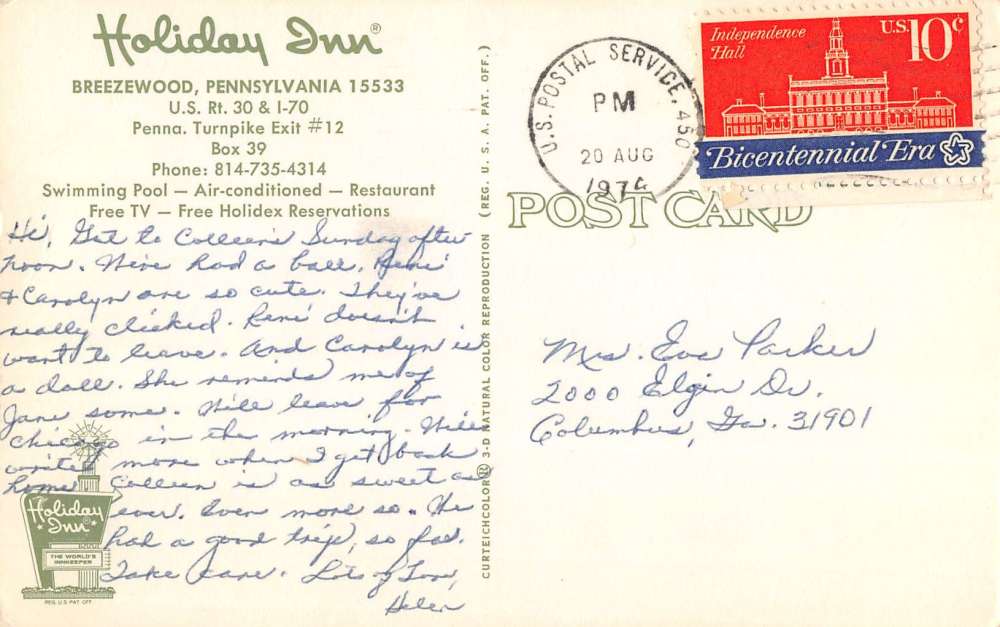 Holiday Inn®
BREEZEWOOD, PENNSYLVANIA 15533
U.S. Rt. 30 & I-70
Penna. Turnpike Exit #12
Box 39
Phone: 814-735-4314
Swimming Pool — Air-conditioned — Restaurant
Free TV — Free Holidex Reservations
Hi, Got to Colleen's Sunday after
noon. We've had a ball. René
& Carolyn are so cute. They've
really clicked. René doesn't
want to leave. And Carolyn is
a doll. She reminds me of
Jane some. Will leave for
Chicago in the morning. Will
write more when I get back
home. Colleen is as sweet as
ever. Even more so. We
had a good trip, so far.
Take care. Lots of Love,
Helen
Holiday
Inn®
THE WORLD'S
INNKEEPER
REG. U.S. PAT. OFF.
CURTEICHCOLOR® 3-D NATURAL COLOR REPRODUCTION (REG. U. S. A. PAT. OFF.)
U.S. POSTAL SERVICE, 450
PM
20 AUG
1974
Independence
Hall
U.S. 10c
Bicentennial Era
POST CARD
Mrs. Eva Parker
2000 Elgin Dr.
Columbus, Ga. 31901